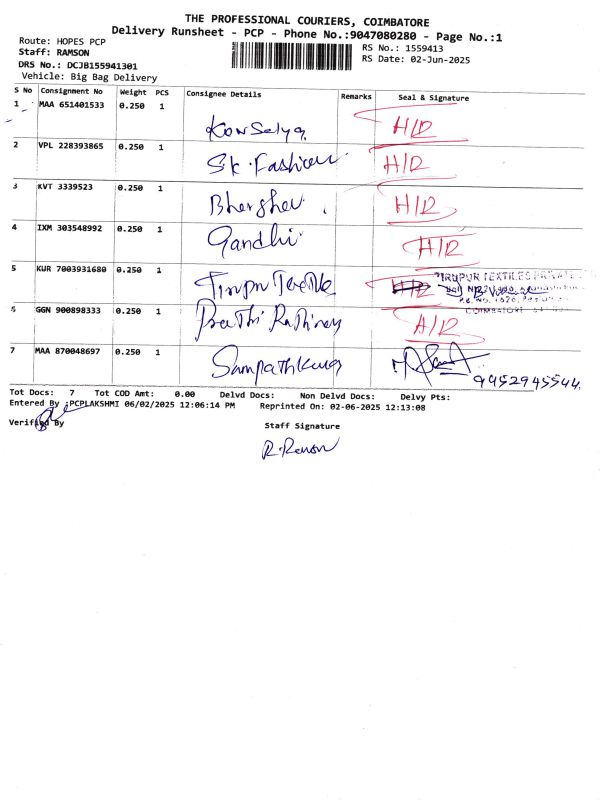 THE PROFESSIONAL COURIERS, COIMBATORE
Delivery Runsheet - PCP - Phone No.:9047080280 - Page No.:1
Route: HOPES PCP
RS No.: 1559413
Staff: RAMSON
RS Date: 02-Jun-2025
DRS No.: DCJB155941301
Vehicle: Big Bag Delivery
S No Consignment No Weight PCS Consignee Details Remarks Seal & Signature
1 MAA 651401533 0.250 1 Kowselya H/R
2 VPL 228393865 0.250 1 Sk. Fashion H/R
3 KVT 3339523 0.250 1 H/R
4 IXM 303548992 0.250 1 Gandhi H/R
5 KUR 7003931680 0.250 1 Tirupur Textile
TIRUPUR TEXTILES PRIVATE
COIMBATORE
6 GGN 900898333 0.250 1 H/R
7 MAA 870048697 0.250 1 Sampathkumar
9952945544.
Tot Docs: 7 Tot COD Amt: 0.00 Delvd Docs: Non Delvd Docs: Delvy Pts:
Entered By :PCPLAKSHMI 06/02/2025 12:06:14 PM Reprinted On: 02-06-2025 12:13:08
Verified By
Staff Signature